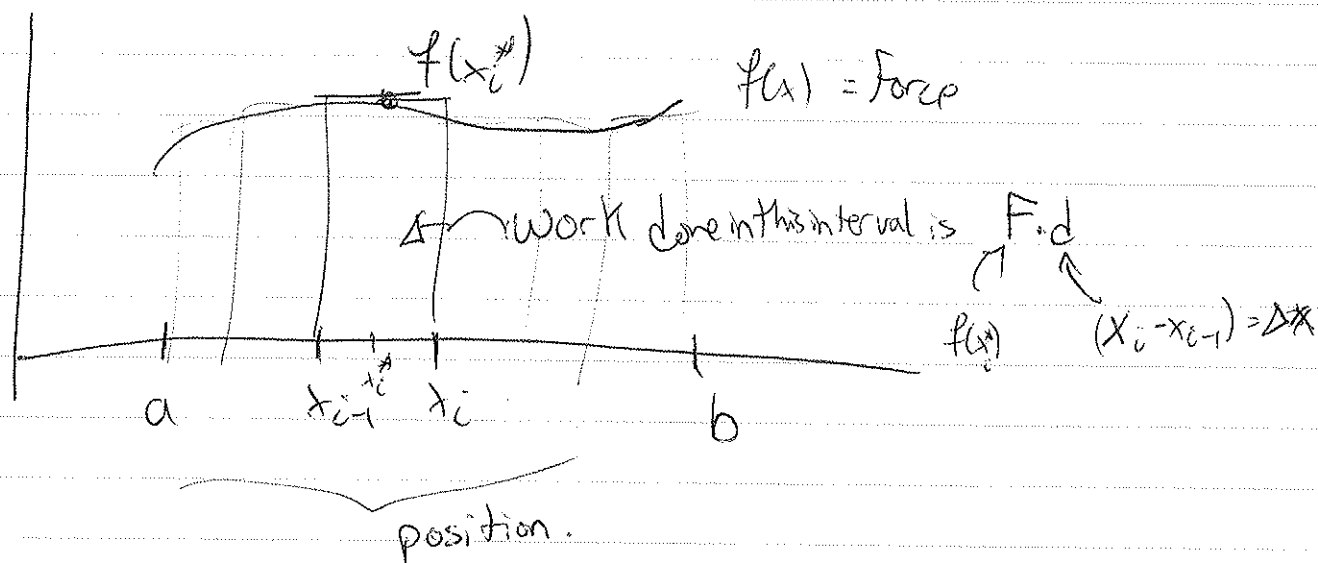 f(x_i^*)
f(x) = Force
Work done in this interval is F.d
f(x_i^*)
(X_i - x_{i-1}) = Δx
x_{i-1} x_i^* x_i
a b
position.